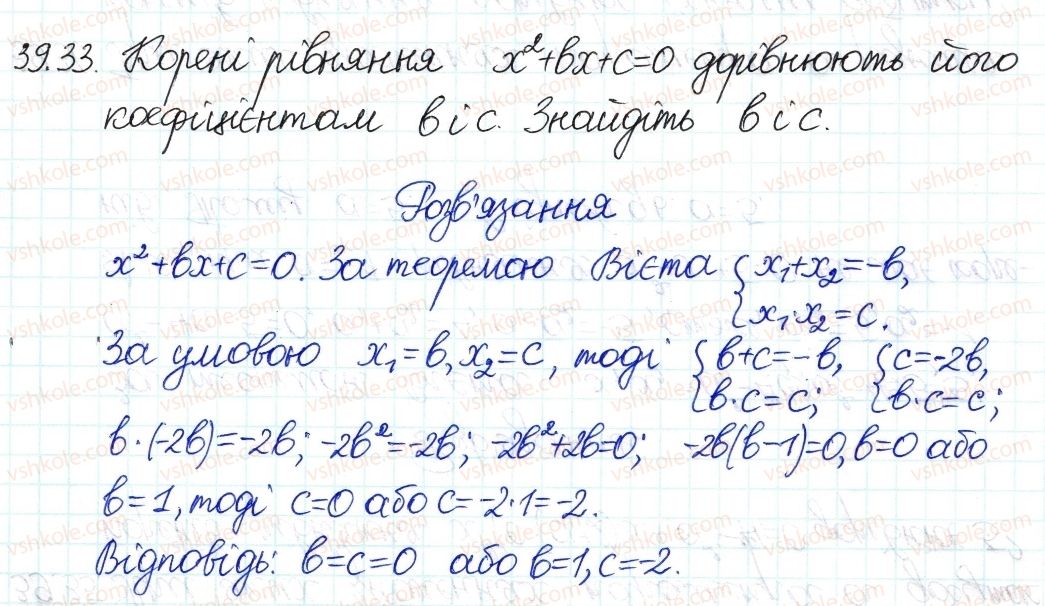 39.33. Корені рівняння x²+bx+c=0 дорівнюють його
коефіцієнтам b і c. Знайдіть b і c.
Розв'язання
x²+bx+c=0. За теоремою Вієта { x₁+x₂=-b,
x₁·x₂=c.
За умовою x₁=b, x₂=c, тоді { b+c=-b, { c=-2b,
b·c=c; b·c=c;
b·(-2b)=-2b; -2b²=-2b; -2b²+2b=0; -2b(b-1)=0, b=0 або
b=1, тоді c=0 або c=-2·1=-2.
Відповідь: b=c=0 або b=1, c=-2.